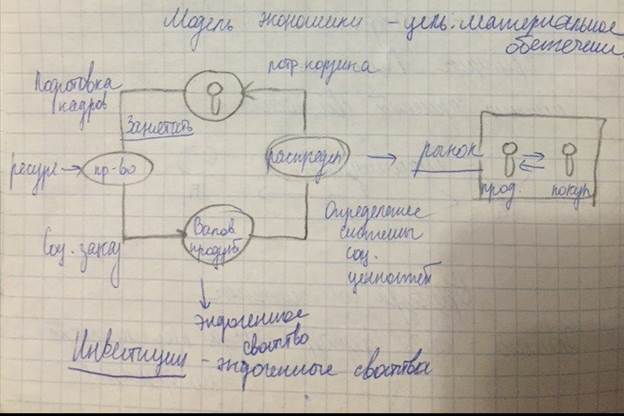 Модель экономики – цель: материальное
обетечени
Подготовка
кадров
потр. корзина
Занятость
ресурс → пр-во
распредел → рынок
прод. покуп.
Соц. заказ
Валов.
продукт
Определение
системы
соц.
ценностей
эндогенное
свойство
Инвестиции – эндогенные свойства